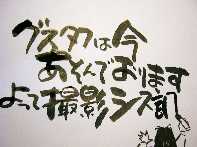 グスタフは今
あそんでおります
よって撮影